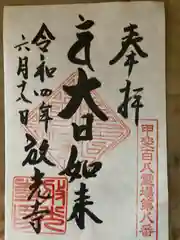 奉拝
甲斐百八霊場第八番
大日如来
放光寺
令和四年
六月十八日